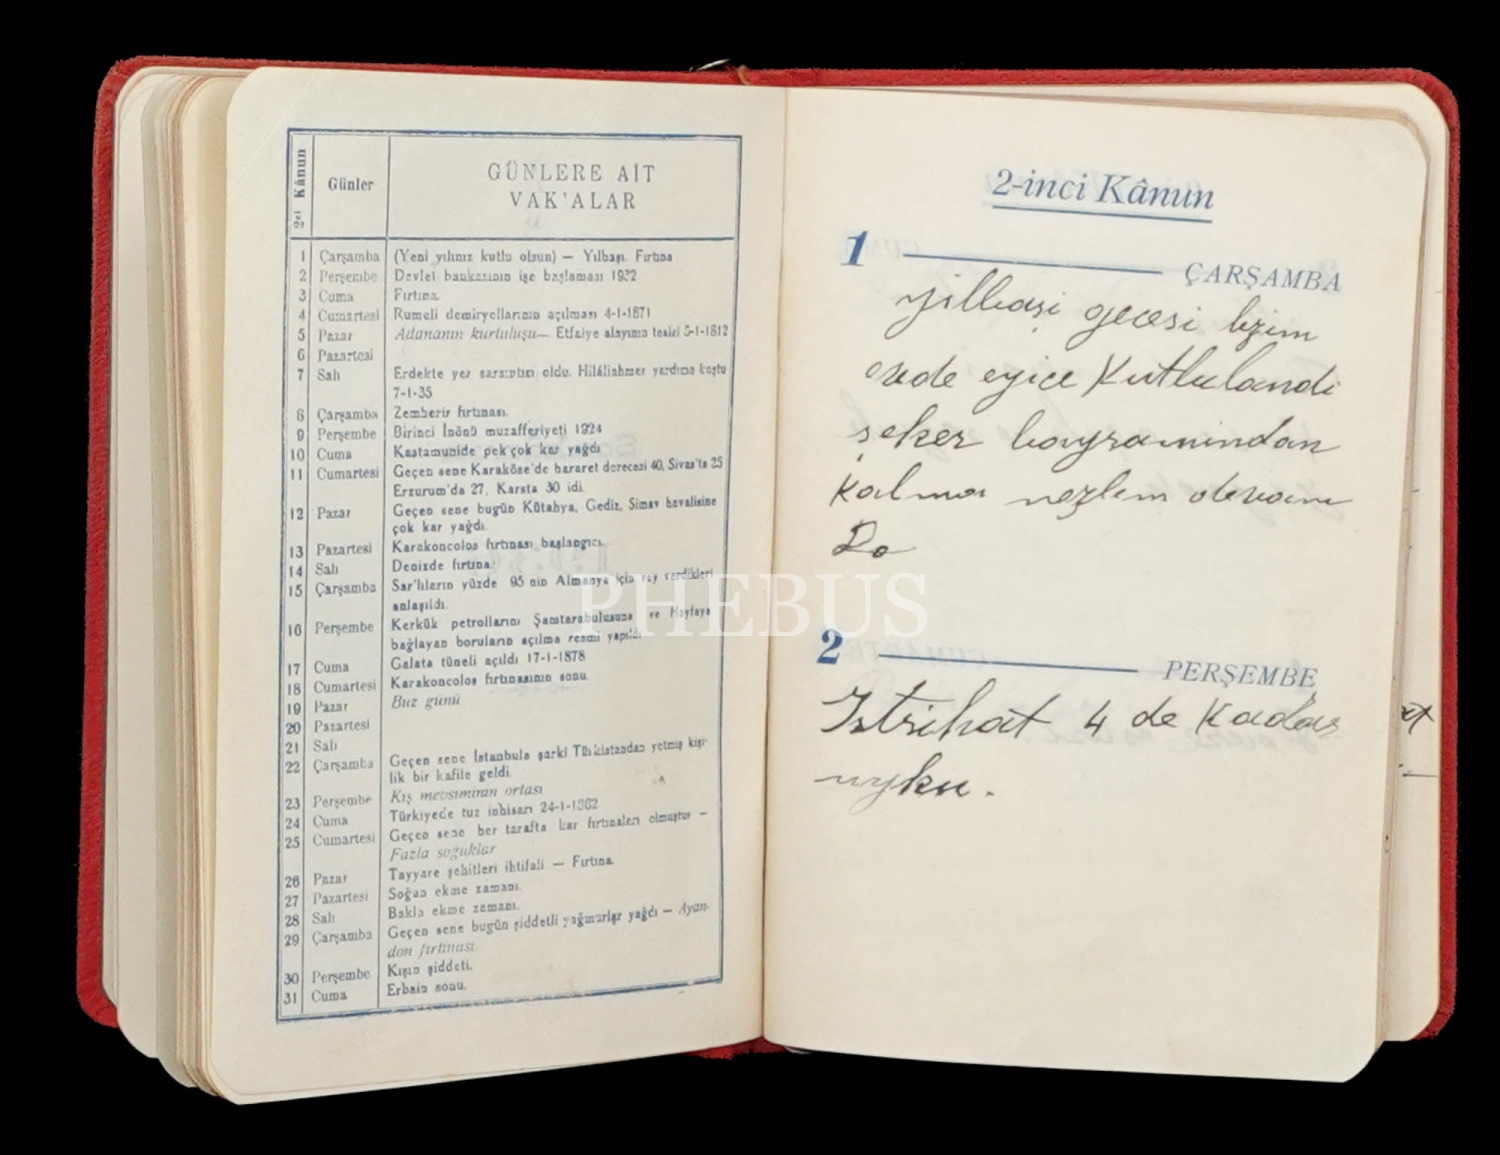 2ci Kânun
Günler
GÜNLERE AİT
VAK'ALAR
1 Çarşamba (Yeni yılınız kutlu olsun) — Yılbaşı. Fırtına
2 Perşembe Devlet bankasının işe başlaması 1932
3 Cuma Fırtına.
4 Cumartesi Rumeli demiryollarının açılması 4-1-1871
5 Pazar Adananın kurtuluşu— Etfaiye alayının tesisi 5-1-1812
6 Pazartesi
7 Salı Erdekte yer sarsıntısı oldu. Hilâliahmer yardıma koştu
7-1-35
8 Çarşamba Zemberir fırtınası.
9 Perşembe Birinci İnönü muzafferiyeti 1924
10 Cuma Kastamunide pek çok kar yağdı
11 Cumartesi Geçen sene Karaköse'de hararet derecesi 40, Sivas'ta 25
Erzurum'da 27, Karsta 30 idi.
12 Pazar Geçen sene bugün Kütahya, Gediz, Simav havalisine
çok kar yağdı.
13 Pazartesi Karakoncolos fırtınası başlangıcı.
14 Salı Denizde fırtına.
15 Çarşamba Sar'lıların yüzde 95 nin Almanya için rey verdikleri
anlaşıldı.
16 Perşembe Kerkük petrollarını Şamtarabulusuna ve Hayfaya
bağlayan boruların açılma resmi yapıldı
17 Cuma Galata tüneli açıldı 17-1-1878
18 Cumartesi Karakoncolos fırtınasının sonu.
19 Pazar Buz günü
20 Pazartesi
21 Salı
22 Çarşamba Geçen sene İstanbula şarkî Türkistandan yetmiş kişi-
lik bir kafile geldi.
23 Perşembe Kış mevsiminin ortası
24 Cuma Türkiyede tuz inhisarı 24-1-1862
25 Cumartesi Geçen sene her tarafta kar fırtınaları olmuştur —
Fazla soğuklar
26 Pazar Tayyare şehitleri ihtifali — Fırtına.
27 Pazartesi Soğan ekme zamanı.
28 Salı Bakla ekme zamanı.
29 Çarşamba Geçen sene bugün şiddetli yağmurlar yağdı — Ayan-
don fırtınası.
30 Perşembe Kışın şiddeti.
31 Cuma Erbain sonu.
2-inci Kânun
1 ÇARŞAMBA
yilbaşi gecesi bizim
evde eyice Kutlulandi
şeker bayramindan
Kalma nezlem devam
Da
2 PERŞEMBE
Istrihat 4 de Kadar
uyku.
PHEBUS